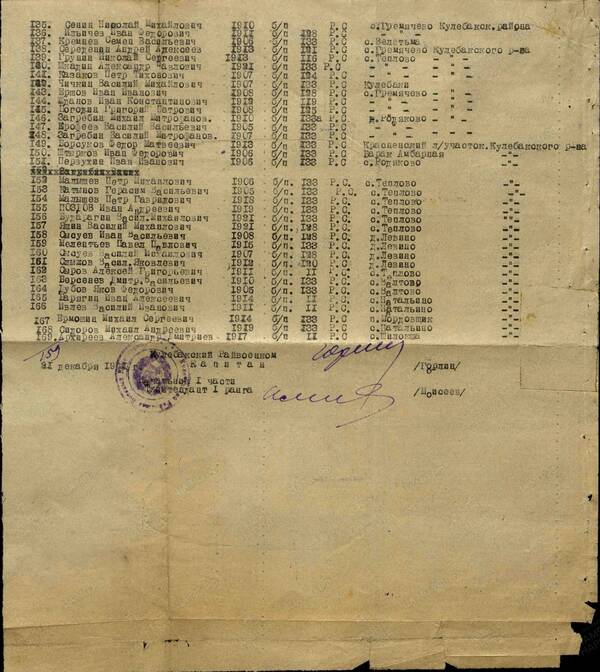 135. Сенин Николай Михайлович 1910 б/п Р.С с.Гремячево Кулебакск.района
136. Ильичев Иван Федорович 1911 б/п 128 Р.С - " - - " -
137. Кремнев Семен Васильевич 1906 б/п 133 Р.С с.Велетьма
138. Середенин Андрей Алексеев 1913 б/п 121 Р.С с.Гремячево Кулебакского р-на
139. Грунин Николай Сергеевич 1913 б/п 116 Р.С с.Теплово - " -
140. Александр Павлович 1921 б/п 133 Р.С - " -
141. Казаков Петр Тихонович 1907 б/п 124 Р.С
142. Чичкин Василий Михайлович 1907 б/п 133 Р.С Кулебаки
143. Ершов Иван Иванович 1908 б/п 128 Р.С с.Гремячево - " -
144. Жданов Иван Константинович 1912 б/п 119 Р.С
145. Погодин Григорий Петрович 1908 б/п 125 Р.С
146. Загребин Михаил Митрофанов. 1910 б/п 133а Р.С д.Родяково - " -
147. Ерофеев Василий Васильевич 1905 б/п 133 Р.С
148. Загребин Василий Митрофанов. 1907 б/п 133 Р.С
149. Борсуков Федор Матвеевич 1913 б/п 133 Р.С л/участок.Кулебакского р-на
150. Иван Федорович 1906 б/п 133 Р.С Барак Амбарная -"-
151. Первухин Иван Иванович 1906 б/п 133 Р.С с.Родиково -"-
152 Малышев Петр Михайлович 1906 б/п. 133 Р.С. с.Теплово -"-
153 Катынов Герасим Васильевич 1905 б/п. 133 Р.С. с.Теплово -"-
154 Малышев Петр Гаврилович 1918 б/п. 133 Р.С. с.Теплово -"-
155 Поздов Иван Андреевич 1919 б/п. 133 Р.С. с.Теплово -"-
156 Бударагин Васил.Михайлович 1921 б/п. 133 Р.С. с.Теплово -"-
157 Яшин Василий Михайлович 1921 б/п. 128 Р.С. с.Теплово -"-
158 Онсуев Иван Васильевич 1908 б/п. 128 Р.С. д.Левино -"-
159 Мелентьев Павел Павлович 1915 б/п. 133 Р.С. д.Левино -"-
160 Онсуев Василий Михайлович 1907 б/п. 128 Р.С. д.Левино -"-
161 Васил.Яковлевич 1912 б/п. 120 Р.С. д.Левино -"-
162 Сыров Алексей Григорьевич 1911 б/п. 11 Р.С. с.Теплово -"-
163 Версенев Дмитр.Васильевич 1910 б/п. 133 Р.С. с.Валтово -"-
164 Дубов Яков Федорович 1906 б/п. 133 Р.С. с.Валтово -"-
165 Парягин Иван Алексеевич 1914 б/п. 11 Р.С. с.Натальино -"-
166 Ивлев Василий Иванович 1911 б/п. 11 Р.С. с.Натальино -"-
167 Ермошин Михаил Сергеевич 1914 б/п 11 Р.С. п.Мордовщик -"-
168 Сидоров Михаил Андреевич 1919 б/п 133 Р.С. с.Натальино -"-
169. Архиреев Александр Дмитриев 1917 б/п. 11 Р.С. с.Шилокша -"-
159
Кулебакский Райвоенком
Капитан /Горлин/
21 декабря
Начальник I части
Интендант I ранга /Моисеев/